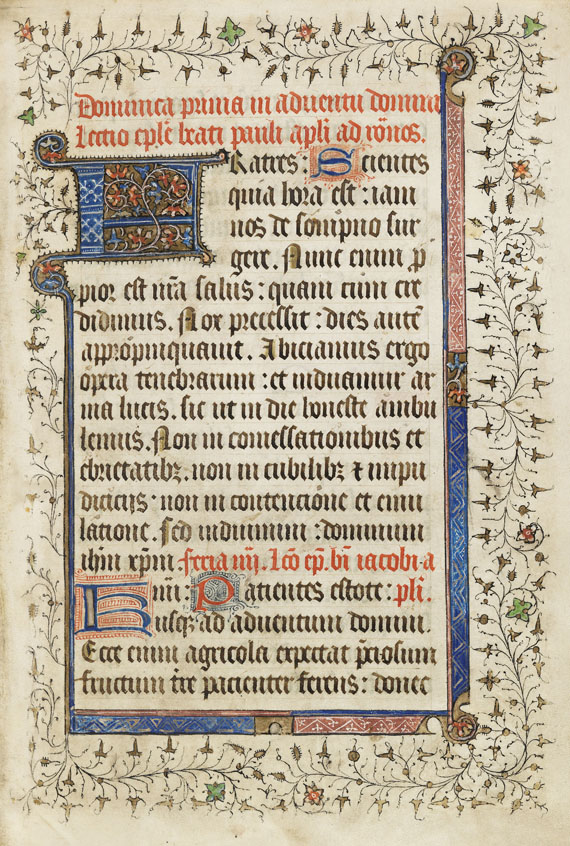 Dominica prima in aduentu domini
Lectio eple beati pauli apli ad rōnos.
FRatres: Scientes
quia hora est: iam
nos de sompno sur
gere. Nunc enim ꝓ
pior est nrā salus: quam cum cre
didimus. Nox precessit: dies autē
appropinquauit. Abiciamus ergo
opera tenebrarum: et induamur ar
ma lucis. sic ut in die honeste ambu
lemus. Non in comessationibus et
ebrietatibꝫ. non in cubilibꝫ ⁊ inpu
diciciis. non in contencione et emu
latione. Sed induimini: dominum
ihm xpm. feria iiii. Lcō ep. bī iacobi a
Patientes estote: pli.
usqꝫ ad aduentum domini.
Ecce enim agricola expectat p̄ciosum
fructum tre pacienter ferens: donec